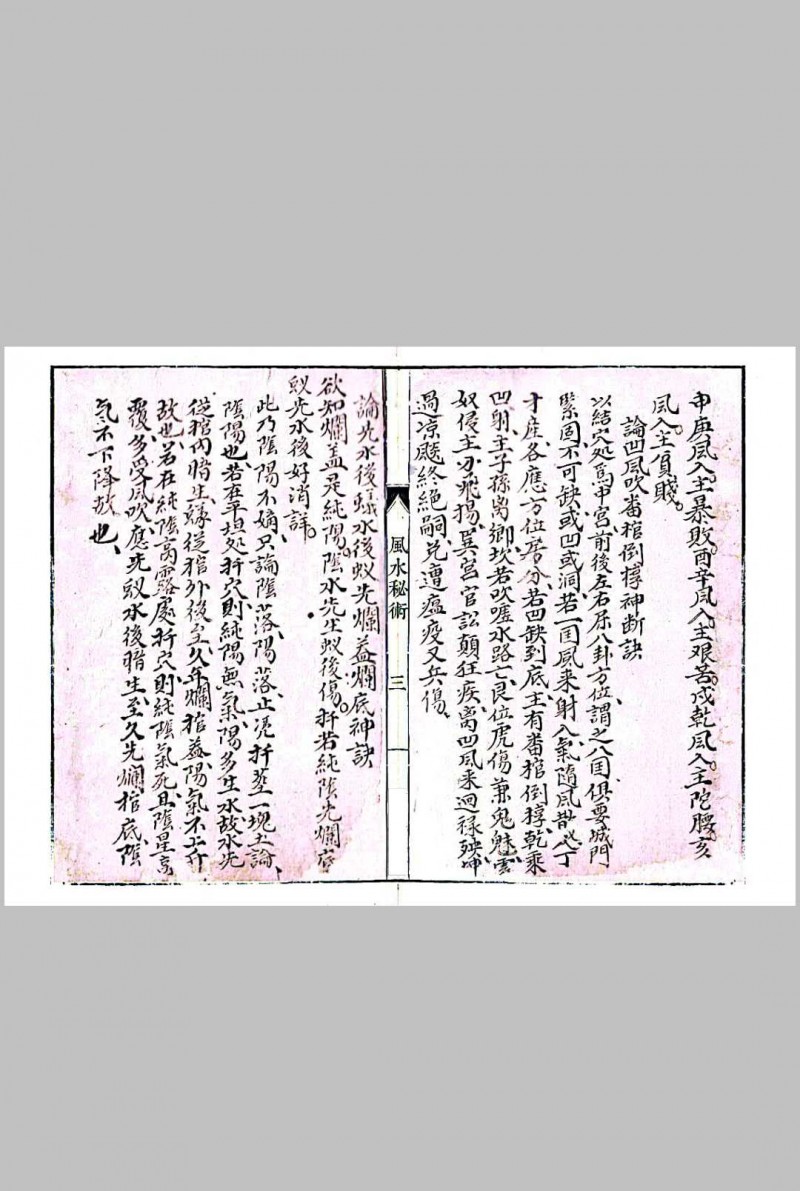 申庚風入主暴敗酉辛風入主艱苦戌乾風入主陀腰亥
風入主貧賤
論凹風吹番棺倒槨神断訣
以結穴処為中宮前後左右係八卦方位謂之八国俱要城門
緊固不可缺或凹或洞若一国風来射入氣隨風散必丁
才産各應方位房分若凹缺到底主有番棺倒槨乾乘
凹射主子孫离鄉坎若吹噓水路亡艮位虎傷兼鬼魅震
奴侵主分飛揚巽宮官訟顛狂疾离凹風来迴祿殃坤
過凉颷終絕嗣兌遭瘟疫又兵傷
風水秘術
三
論先水後蟻水後蚁先爛益爛底神訣
欲知爛蓋是純陽陰水先生蚁後傷扦若純陰先爛底
蚁先水後好消詳
此乃陰陽不媾只論陰落陽落止凴扦塋一塊土論
陰陽也若在平坦処扦穴則純陽無氣陽多生水故水先
從棺內暗生蟓從棺外後至久年爛棺益陽氣不上升
故也若在純陰高露處扦穴則純陰氣死且陰星高
覆多受風吹應先蚁水後暗生至久先爛棺底陰
气不下降故也